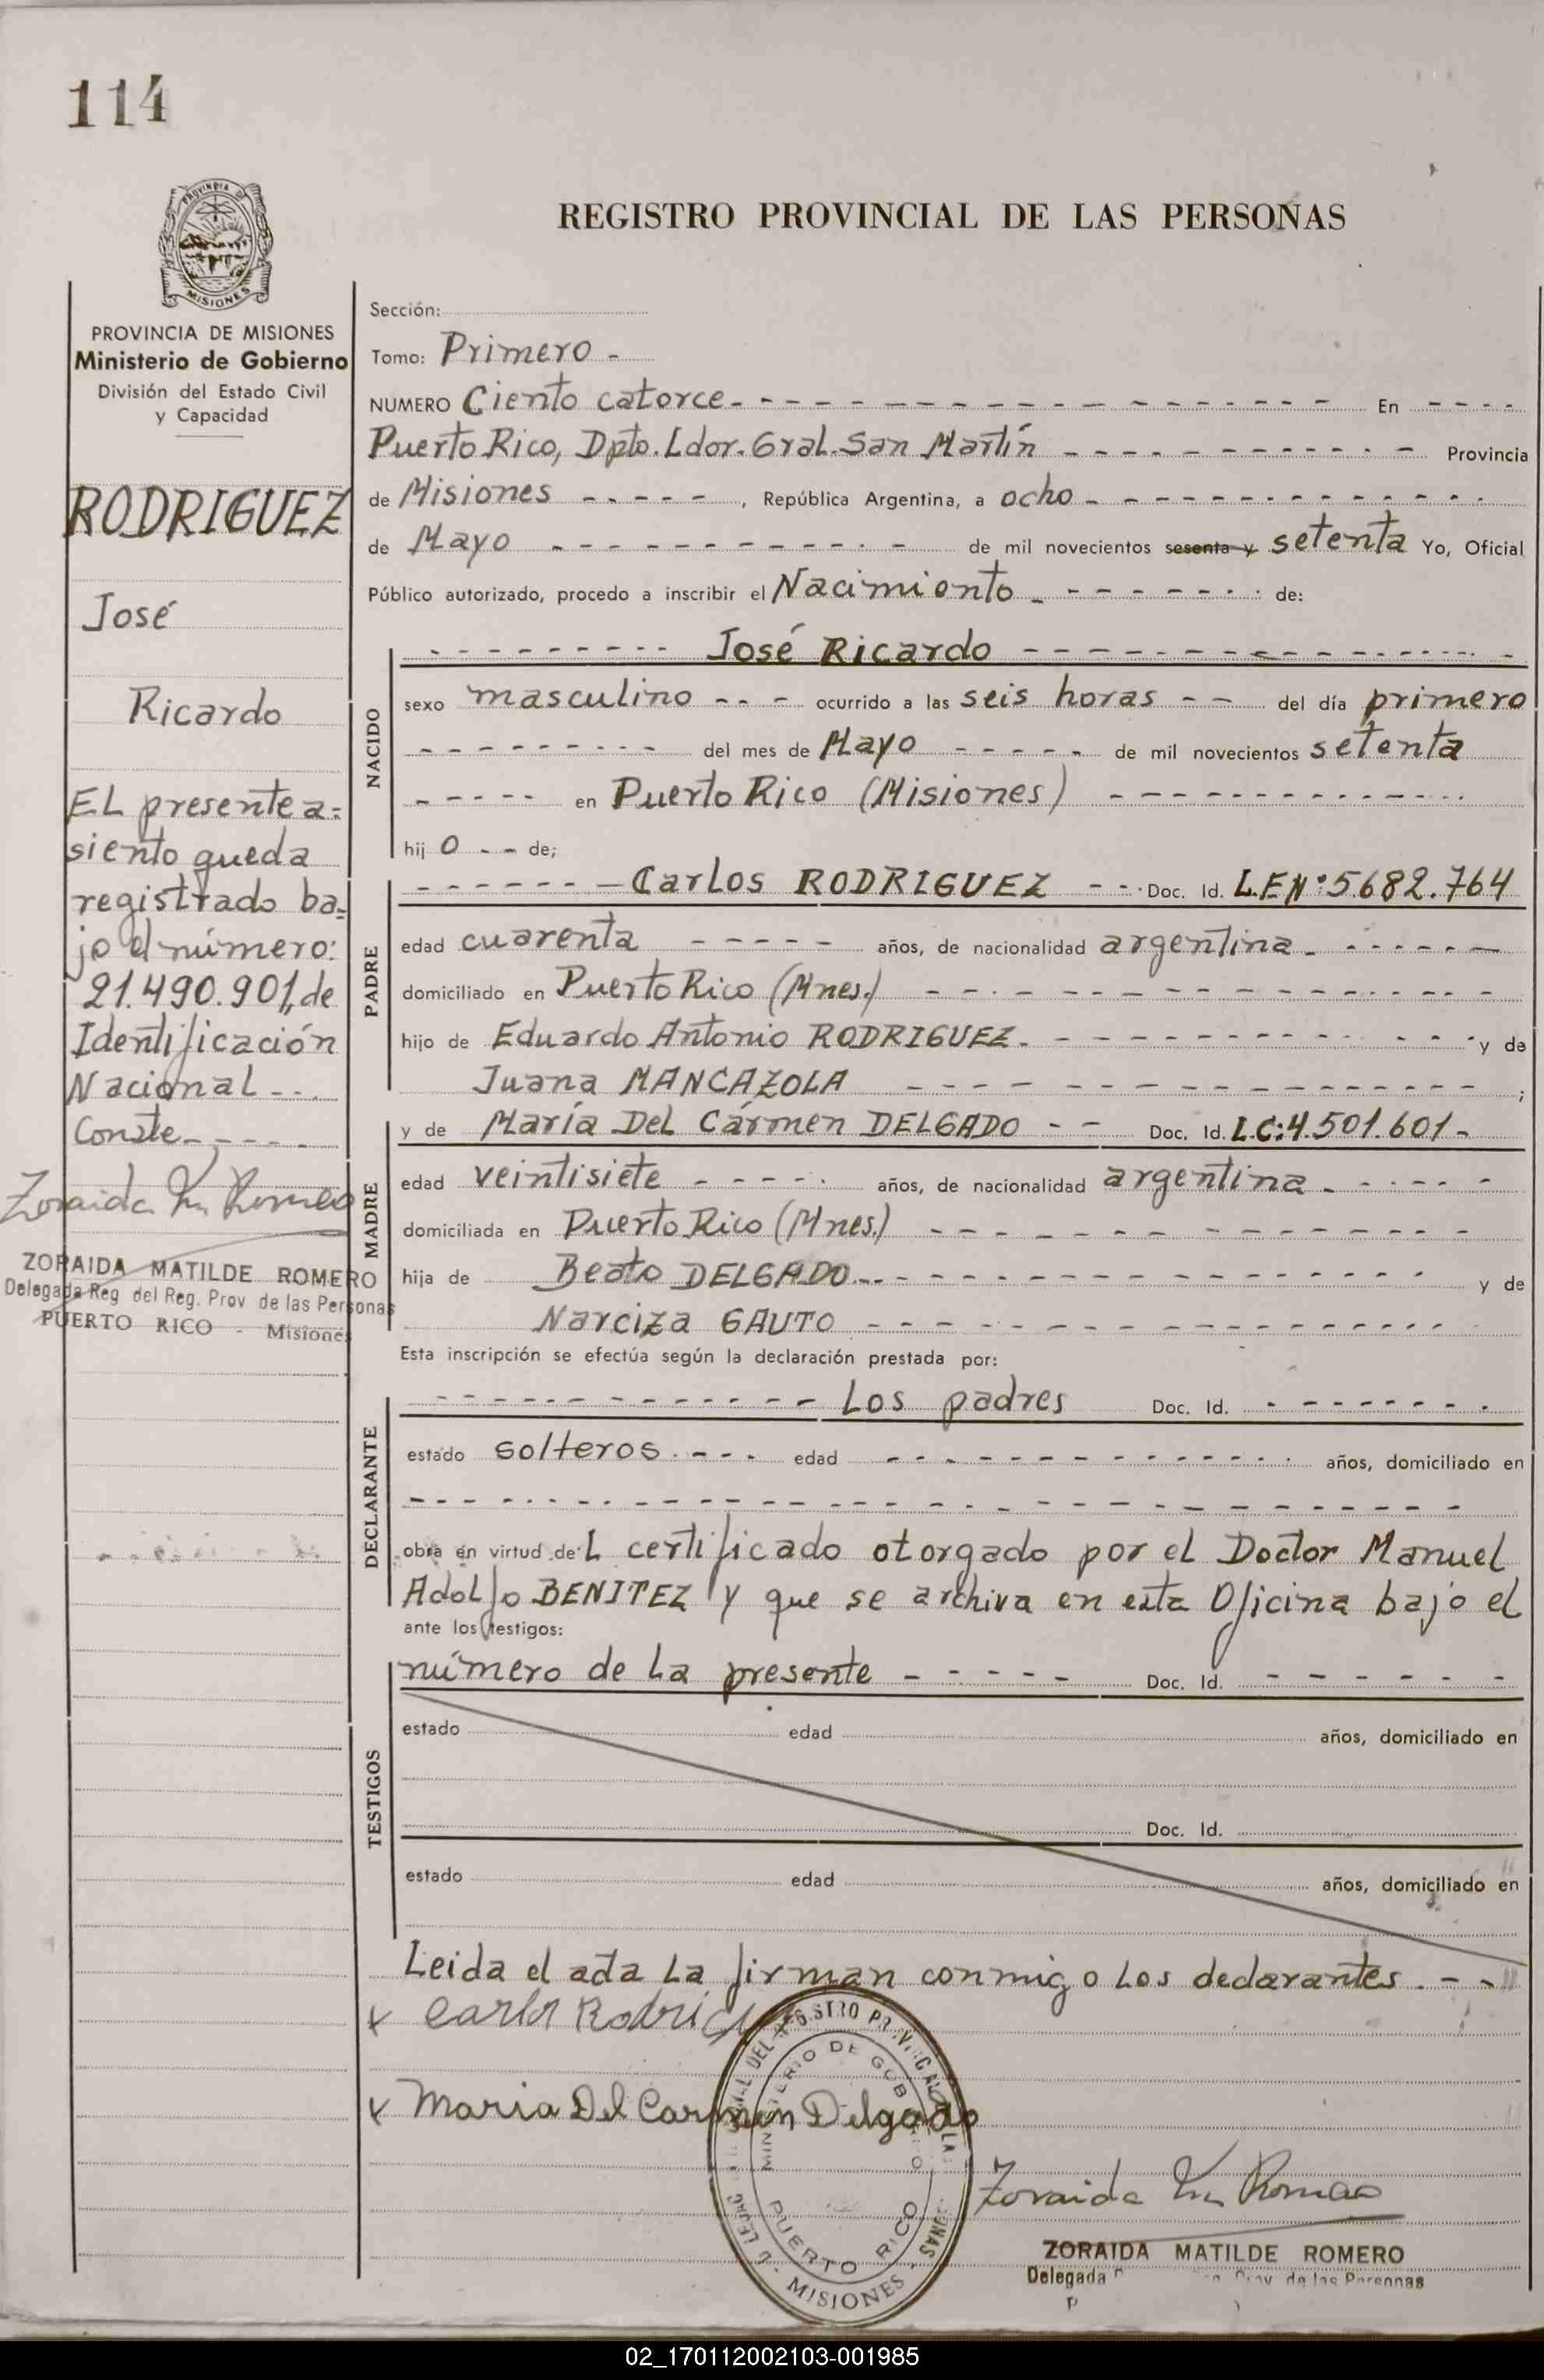 114
PROVINCIA DE
MISIONES
REGISTRO PROVINCIAL DE LAS PERSONAS
PROVINCIA DE MISIONES
Ministerio de Gobierno
División del Estado Civil
y Capacidad
RODRIGUEZ
José
Ricardo
EL presente a=
siento queda
registrado ba=
jo el número:
21.490.901, de
Identificación
Nacional - - .
Conste - - - - -
Zoraida M. Romero
ZORAIDA MATILDE ROMERO
Delegada Reg del Reg. Prov de las Personas
PUERTO RICO - Misiones
Sección:
Tomo: Primero -
NUMERO Ciento catorce - - - - En - - - -
Puerto Rico, Dpto. Ldor. Gral. San Martín - - - - Provincia
de Misiones - - - - - , República Argentina, a ocho - - - -
de Mayo - - - - de mil novecientos sesenta y setenta Yo, Oficial
Público autorizado, procedo a inscribir el Nacimiento - - - - de:
- - - - José Ricardo - - - -
NACIDO
sexo masculino - - - ocurrido a las seis horas - - del día primero
- - - - del mes de Mayo - - - - de mil novecientos setenta
- - - - - en Puerto Rico (Misiones) - - - -
hij o - - de;
PADRE
- - - - Carlos RODRIGUEZ - - - Doc. Id. L.E.Nº: 5.682.764
edad cuarenta - - - - - años, de nacionalidad argentina - - - -
domiciliado en Puerto Rico (Mnes.) - - - -
hijo de Eduardo Antonio RODRIGUEZ - - - - y de
Juana MANCAZOLA - - - - ;
MADRE
y de María Del Cármen DELGADO - - Doc. Id. L.C:4.501.601 -
edad veintisiete - - - - - años, de nacionalidad argentina - - - -
domiciliada en Puerto Rico (Mnes.) - - - -
hija de Beato DELGADO - - - - y de
Narciza GAUTO - - - -
Esta inscripción se efectúa según la declaración prestada por:
DECLARANTE
- - - - Los padres Doc. Id. - - - -
estado solteros - - - - edad - - - - años, domiciliado en
- - - -
obra en virtud de L certificado otorgado por el Doctor Manuel
Adolfo BENITEZ y que se archiva en esta Oficina bajo el
ante los testigos:
TESTIGOS
número de la presente - - - - - Doc. Id. - - - - - -
estado edad años, domiciliado en
Doc. Id.
estado edad años, domiciliado en
Leida el acta la firman conmigo los declarantes. - -
x Carlos Rodrigu
x Maria Del Carmen Delgado
MINISTERIO DE GOBIERNO
PUERTO RICO
MISIONES
Zoraida M. Romero
ZORAIDA MATILDE ROMERO
Delegada Prov de las Personas
02_170112002103-001985